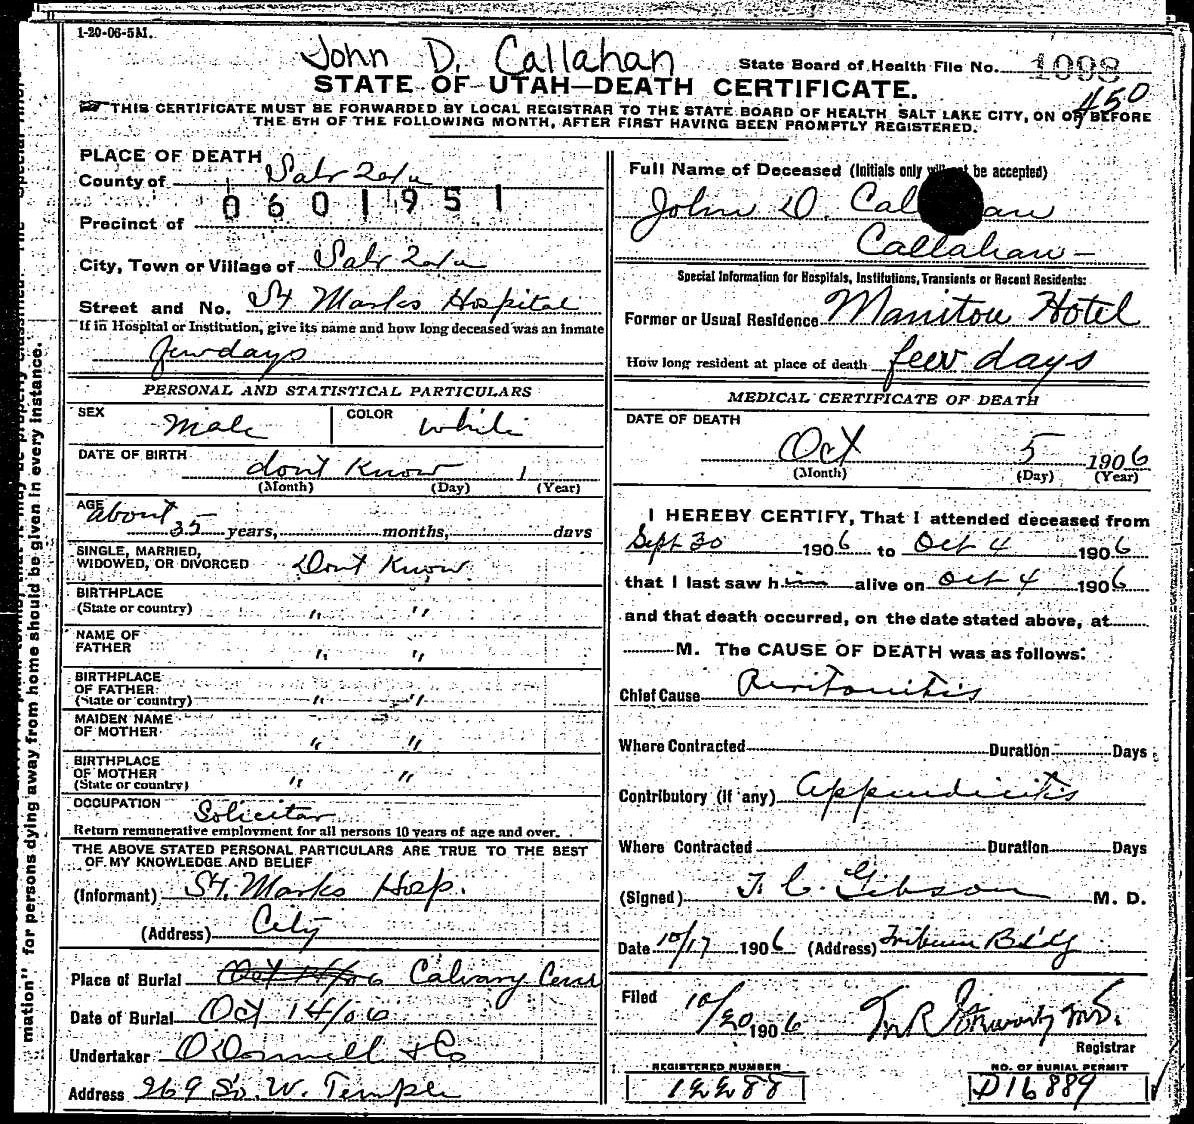 1-20-06-5M.
John D. Callahan
State Board of Health File No. 1098
STATE OF UTAH—DEATH CERTIFICATE.
450
THIS CERTIFICATE MUST BE FORWARDED BY LOCAL REGISTRAR TO THE STATE BOARD OF HEALTH SALT LAKE CITY, ON OR BEFORE
THE 5TH OF THE FOLLOWING MONTH, AFTER FIRST HAVING BEEN PROMPTLY REGISTERED.
PLACE OF DEATH
County of Salt Lake
0601951
Precinct of
City, Town or Village of Salt Lake
Street and No. St Marks Hospital
If in Hospital or Institution, give its name and how long deceased was an inmate
few days
PERSONAL AND STATISTICAL PARTICULARS
SEX Male COLOR White
DATE OF BIRTH dont Know 1
(Month) (Day) (Year)
AGE about 35 years, months, days
SINGLE, MARRIED,
WIDOWED, OR DIVORCED Dont Know
BIRTHPLACE
(State or country) " "
NAME OF
FATHER " "
BIRTHPLACE
OF FATHER
(State or country) " "
MAIDEN NAME
OF MOTHER " "
BIRTHPLACE
OF MOTHER
(State or country) " "
OCCUPATION Solicitor
Return remunerative employment for all persons 10 years of age and over.
THE ABOVE STATED PERSONAL PARTICULARS ARE TRUE TO THE BEST
OF MY KNOWLEDGE AND BELIEF
(Informant) St. Marks Hosp.
(Address) City
Place of Burial Oct 14/06 Calvary Cem
Date of Burial Oct 14/06
Undertaker O'Donnell & Co
Address 269 So. W. Temple
Full Name of Deceased (Initials only will not be accepted)
John D. Callahan
Callahan -
Special Information for Hospitals, Institutions, Transients or Recent Residents:
Former or Usual Residence Manitou Hotel
How long resident at place of death few days
MEDICAL CERTIFICATE OF DEATH
DATE OF DEATH
Oct 5 1906
(Month) (Day) (Year)
I HEREBY CERTIFY, That I attended deceased from
Sept 30 1906 to Oct 4 1906
that I last saw him alive on Oct 4 1906
and that death occurred, on the date stated above, at
M. The CAUSE OF DEATH was as follows:
Chief Cause Peritonitis
Where Contracted Duration Days
Contributory (if any) Appendicitis
Where Contracted Duration Days
(Signed) T. C. Gibson M. D.
Date 10/17 1906 (Address) Tribune Bldg
Filed 10/20 1906
Registrar
REGISTERED NUMBER
12288
NO. OF BURIAL PERMIT
D16889
mation" for persons dying away from home should be given in every instance.